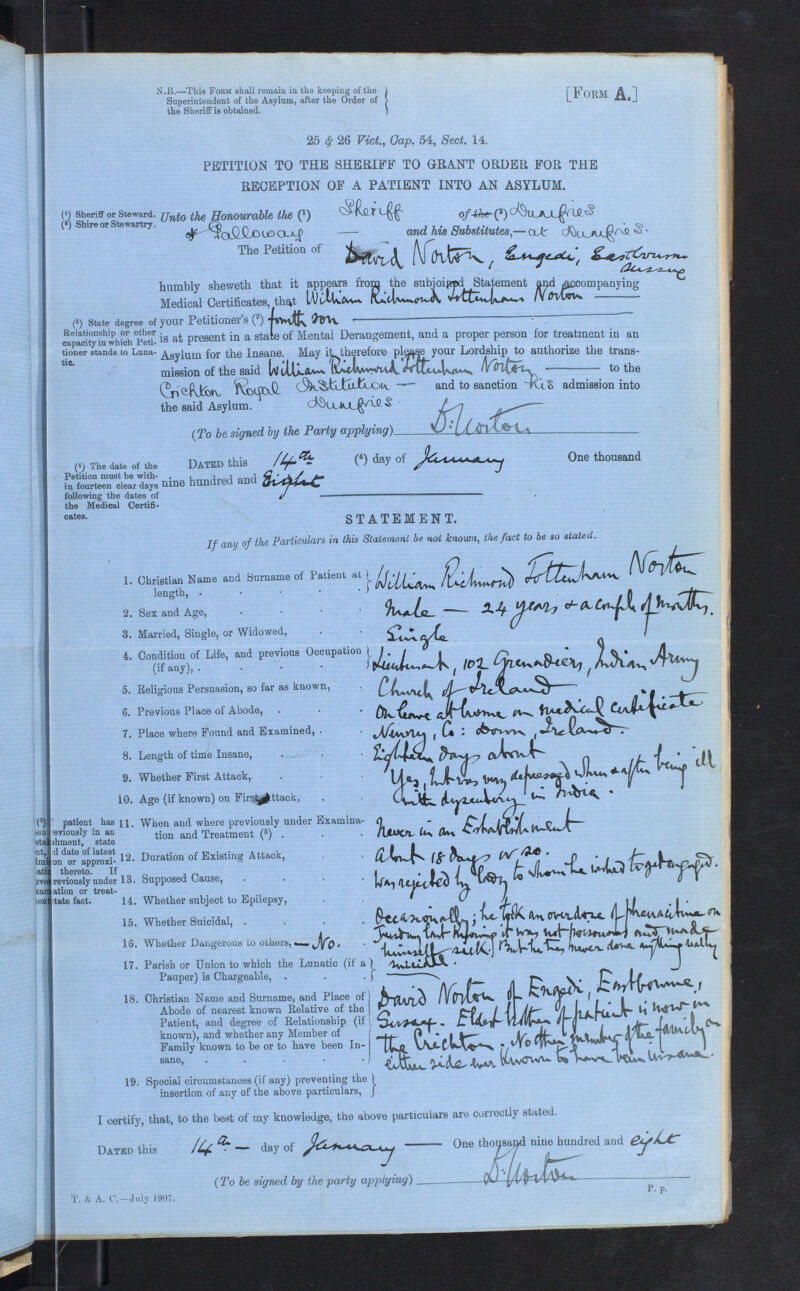 N.B.—This Form shall remain in the keeping of the
Superintendent of the Asylum, after the Order of
the Sheriff is obtained.
[Form A.]
25 & 26 Vict., Cap. 54, Sect. 14.
PETITION TO THE SHERIFF TO GRANT ORDER FOR THE
RECEPTION OF A PATIENT INTO AN ASYLUM.
(1) Sheriff or Steward.
(2) Shire or Stewartry.
Unto the Honourable the (1) Sheriff of the (2) Dumfries
& Galloway — and his Substitutes,— at Dumfries.
The Petition of David Norton, Engedi, Eastbourne
Sussex
humbly sheweth that it appears from the subjoined Statement and accompanying
Medical Certificates, that William Richmond Tottenham Norton —
(3) State degree of
Relationship or other
capacity in which Peti-
tioner stands to Luna-
tic.
your Petitioner's (3) fourth son —
is at present in a state of Mental Derangement, and a proper person for treatment in an
Asylum for the Insane. May it therefore please your Lordship to authorize the trans-
mission of the said William Richmond Tottenham Norton — to the
Crichton Royal Institution — and to sanction his admission into
the said Asylum. Dumfries.
(To be signed by the Party applying) D: Norton
(4) The date of the
Petition must be with-
in fourteen clear days
following the dates of
the Medical Certifi-
cates.
Dated this 14th (4) day of January One thousand
nine hundred and Eight
STATEMENT.
If any of the Particulars in this Statement be not known, the fact to be so stated.
1. Christian Name and Surname of Patient at
length, . William Richmond Tottenham Norton
2. Sex and Age, Male — 24 years & a couple of months.
3. Married, Single, or Widowed, Single
4. Condition of Life, and previous Occupation
(if any), . Lieutenant, 102 Grenadiers, Indian Army
5. Religious Persuasion, so far as known, Church of Ireland
6. Previous Place of Abode, On leave at home on medical certificate
7. Place where Found and Examined, Newry, Co: Down, Ireland.
8. Length of time Insane, Eighteen days about
9. Whether First Attack, Yes, but was very depressed when & after being ill
10. Age (if known) on First Attack, with dysentery in India.
(5) patient has
previously in an
state
date of latest
on or approxi-
thereto. If
previously under
ation or treat-
state fact.
11. When and where previously under Examina-
tion and Treatment (5) . Never in an Establishment
12. Duration of Existing Attack, About 18 days or so.
13. Supposed Cause, Was rejected by lady to whom he wished to get engaged.
14. Whether subject to Epilepsy,
15. Whether Suicidal, Occasionally; he took an overdose of phenacitine on
16. Whether Dangerous to others, — No. Tuesday last knowing it was not poisonous and made
himself sick. But he has never done anything really
17. Parish or Union to which the Lunatic (if a
Pauper) is Chargeable, . suicidal.
18. Christian Name and Surname, and Place of
Abode of nearest known Relative of the
Patient, and degree of Relationship (if
known), and whether any Member of
Family known to be or to have been In-
sane,
David Norton of Engedi, Eastbourne,
Sussex. Eldest brother of patient is now in
the Crichton. No other member of the family on
either side ever known to have been insane.
19. Special circumstances (if any) preventing the
insertion of any of the above particulars,
I certify, that, to the best of my knowledge, the above particulars are correctly stated.
Dated this 14th — day of January — One thousand nine hundred and eight
(To be signed by the party applying) D: Norton
T. & A. C.—July 1907.
P. p.